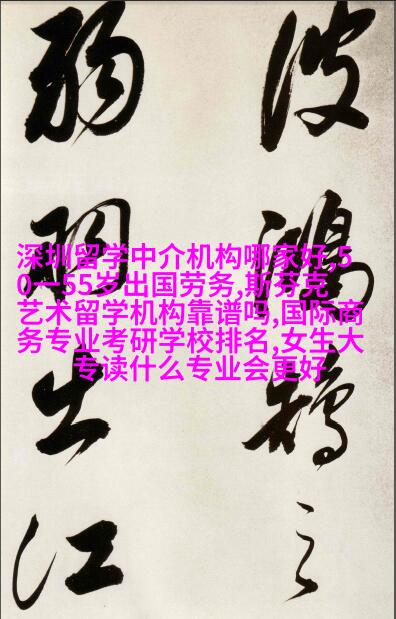 彼鴻鵠之
弱羽出江
深圳留学中介机构哪家好,5
0一55岁出国劳务,斯芬克
艺术留学机构靠谱吗,国际商
务专业考研学校排名,女生大
专读什么专业会更好